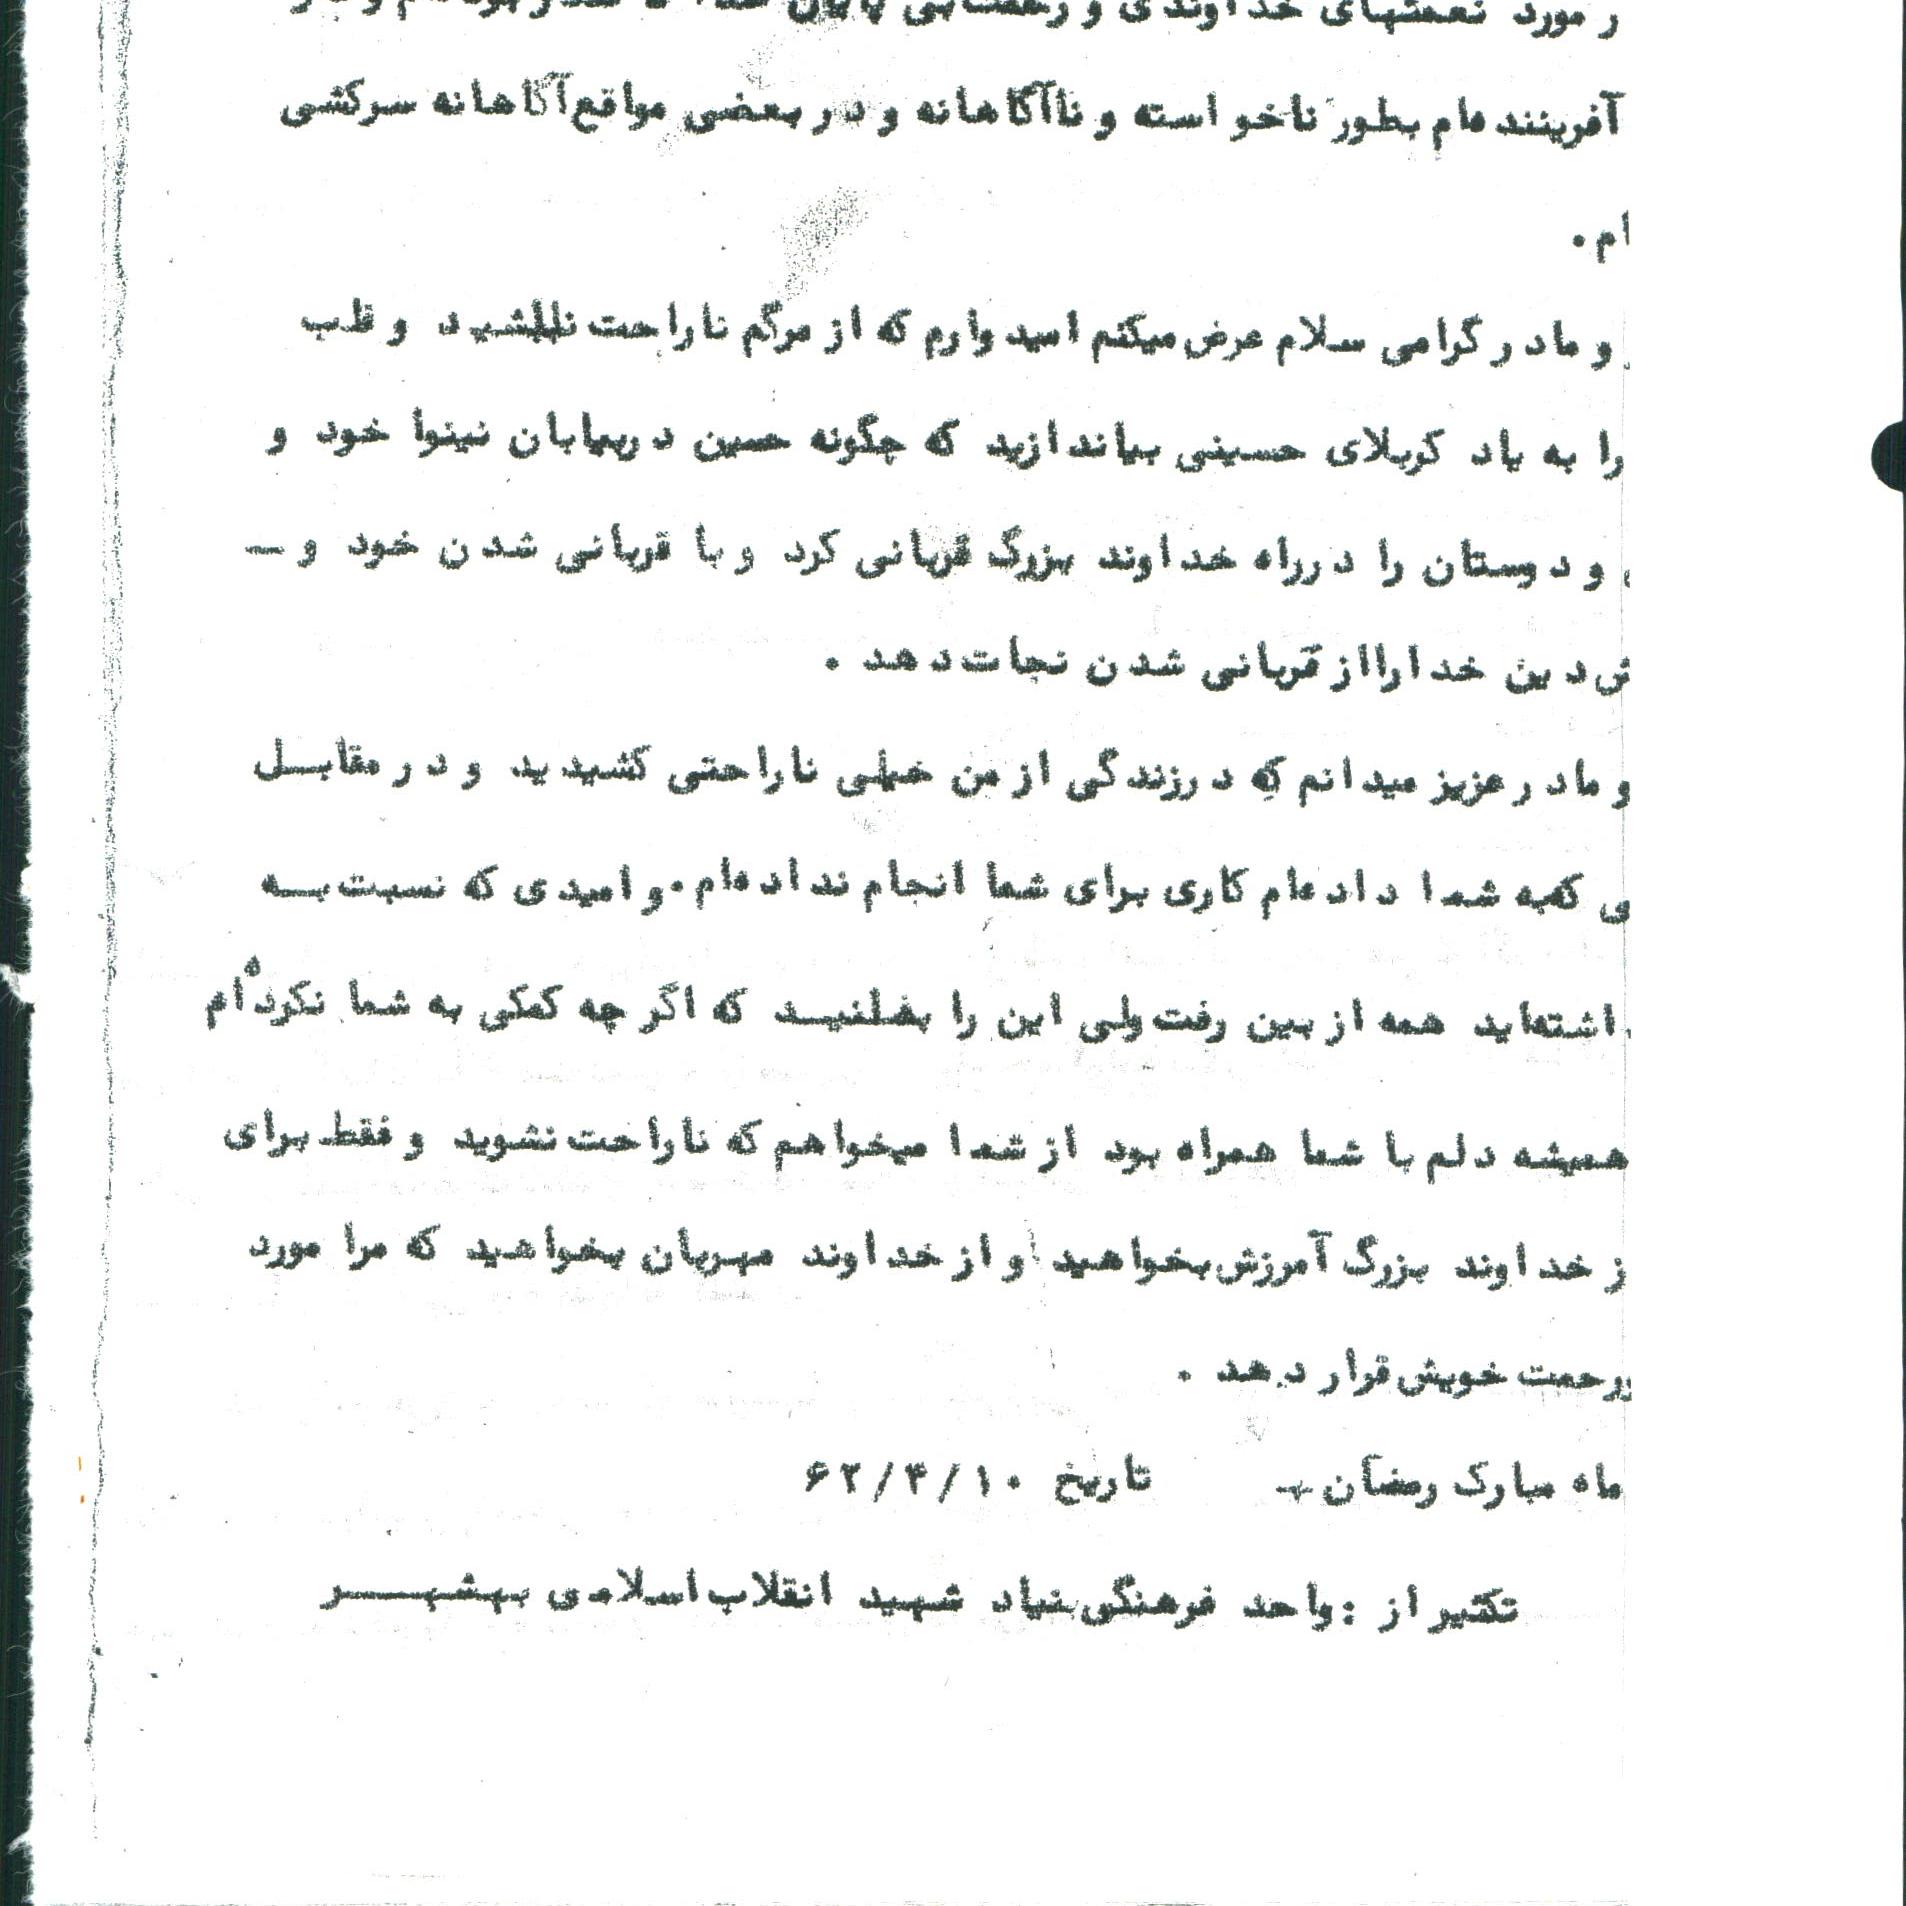 ر مورد نعمتهای خداوندی و رحمت بی پایان
آفریننده‌ام بطور ناخواسته و ناآگاهانه و در بعضی مواقع آگاهانه سرکشی
ام.
و مادر گرامی سلام عرض میکنم امیدوارم که از مرگم ناراحت نباشید و قلب
را به یاد کربلای حسینی بیاندازید که چگونه حسین دربیابان نینوا خود و
و دوستان را درراه خداوند بزرگ قربانی کرد و با قربانی شدن خود و ـ
ش دین خدارا از قربانی شدن نجات دهد .
و مادر عزیز میدانم که درزندگی از من خیلی ناراحتی کشیدید و در مقابـل
ی که‌به شما داده‌ام کاری برای شما انجام نداده‌ام. و امیدی که نسبت بـه
اشته‌اید همه از بین رفت ولی این را بدانیـد که اگر چه کمکی به شما نکرده‌ام
همیشه دلم با شما همراه بود از شما میخواهم که ناراحت نشوید و فقط برای
ز خداوند بزرگ آمرزش بخواهید و از خداوند مهربان بخواهید که مرا مورد
ورحمت خویش قرار دهد .
ماه مبارک رمضان ـ تاریخ ۶۲/۴/۱۰
تکثیر از : واحد فرهنگی بنیاد شهید انقلاب اسلامی بهشهـــر